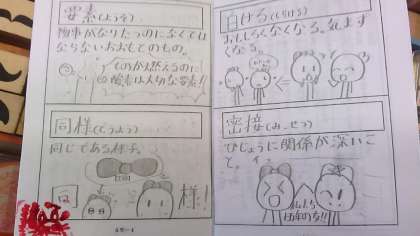 要素(ようそ)
物事がなりたつのになくては
ならないおおもとのもの。
ものが燃えるのに
酸素は大切な要素!!
同様(どうよう)
同じである様子。
同
様!
白ける(しらける)
おもしろくなくなる。気まず
くなる。
密接(みっせつ)
ひじょうに関係が深いこ
と。